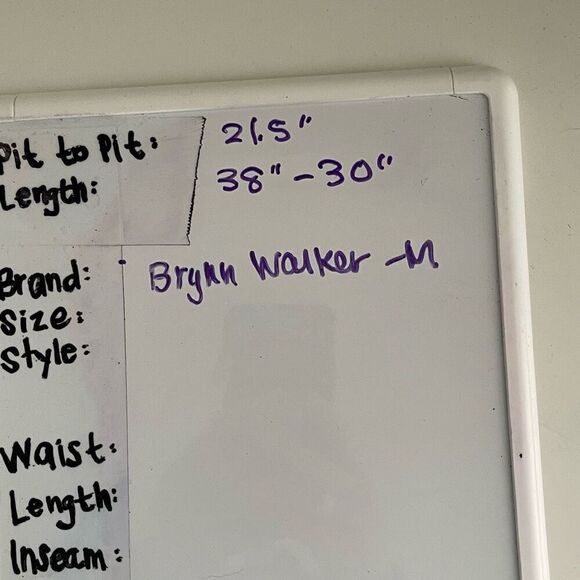 Pit to Pit: 21.5"
Length: 38" - 30"
Brand: Brynn Walker - M
Size:
Style:
Waist:
Length:
Inseam: